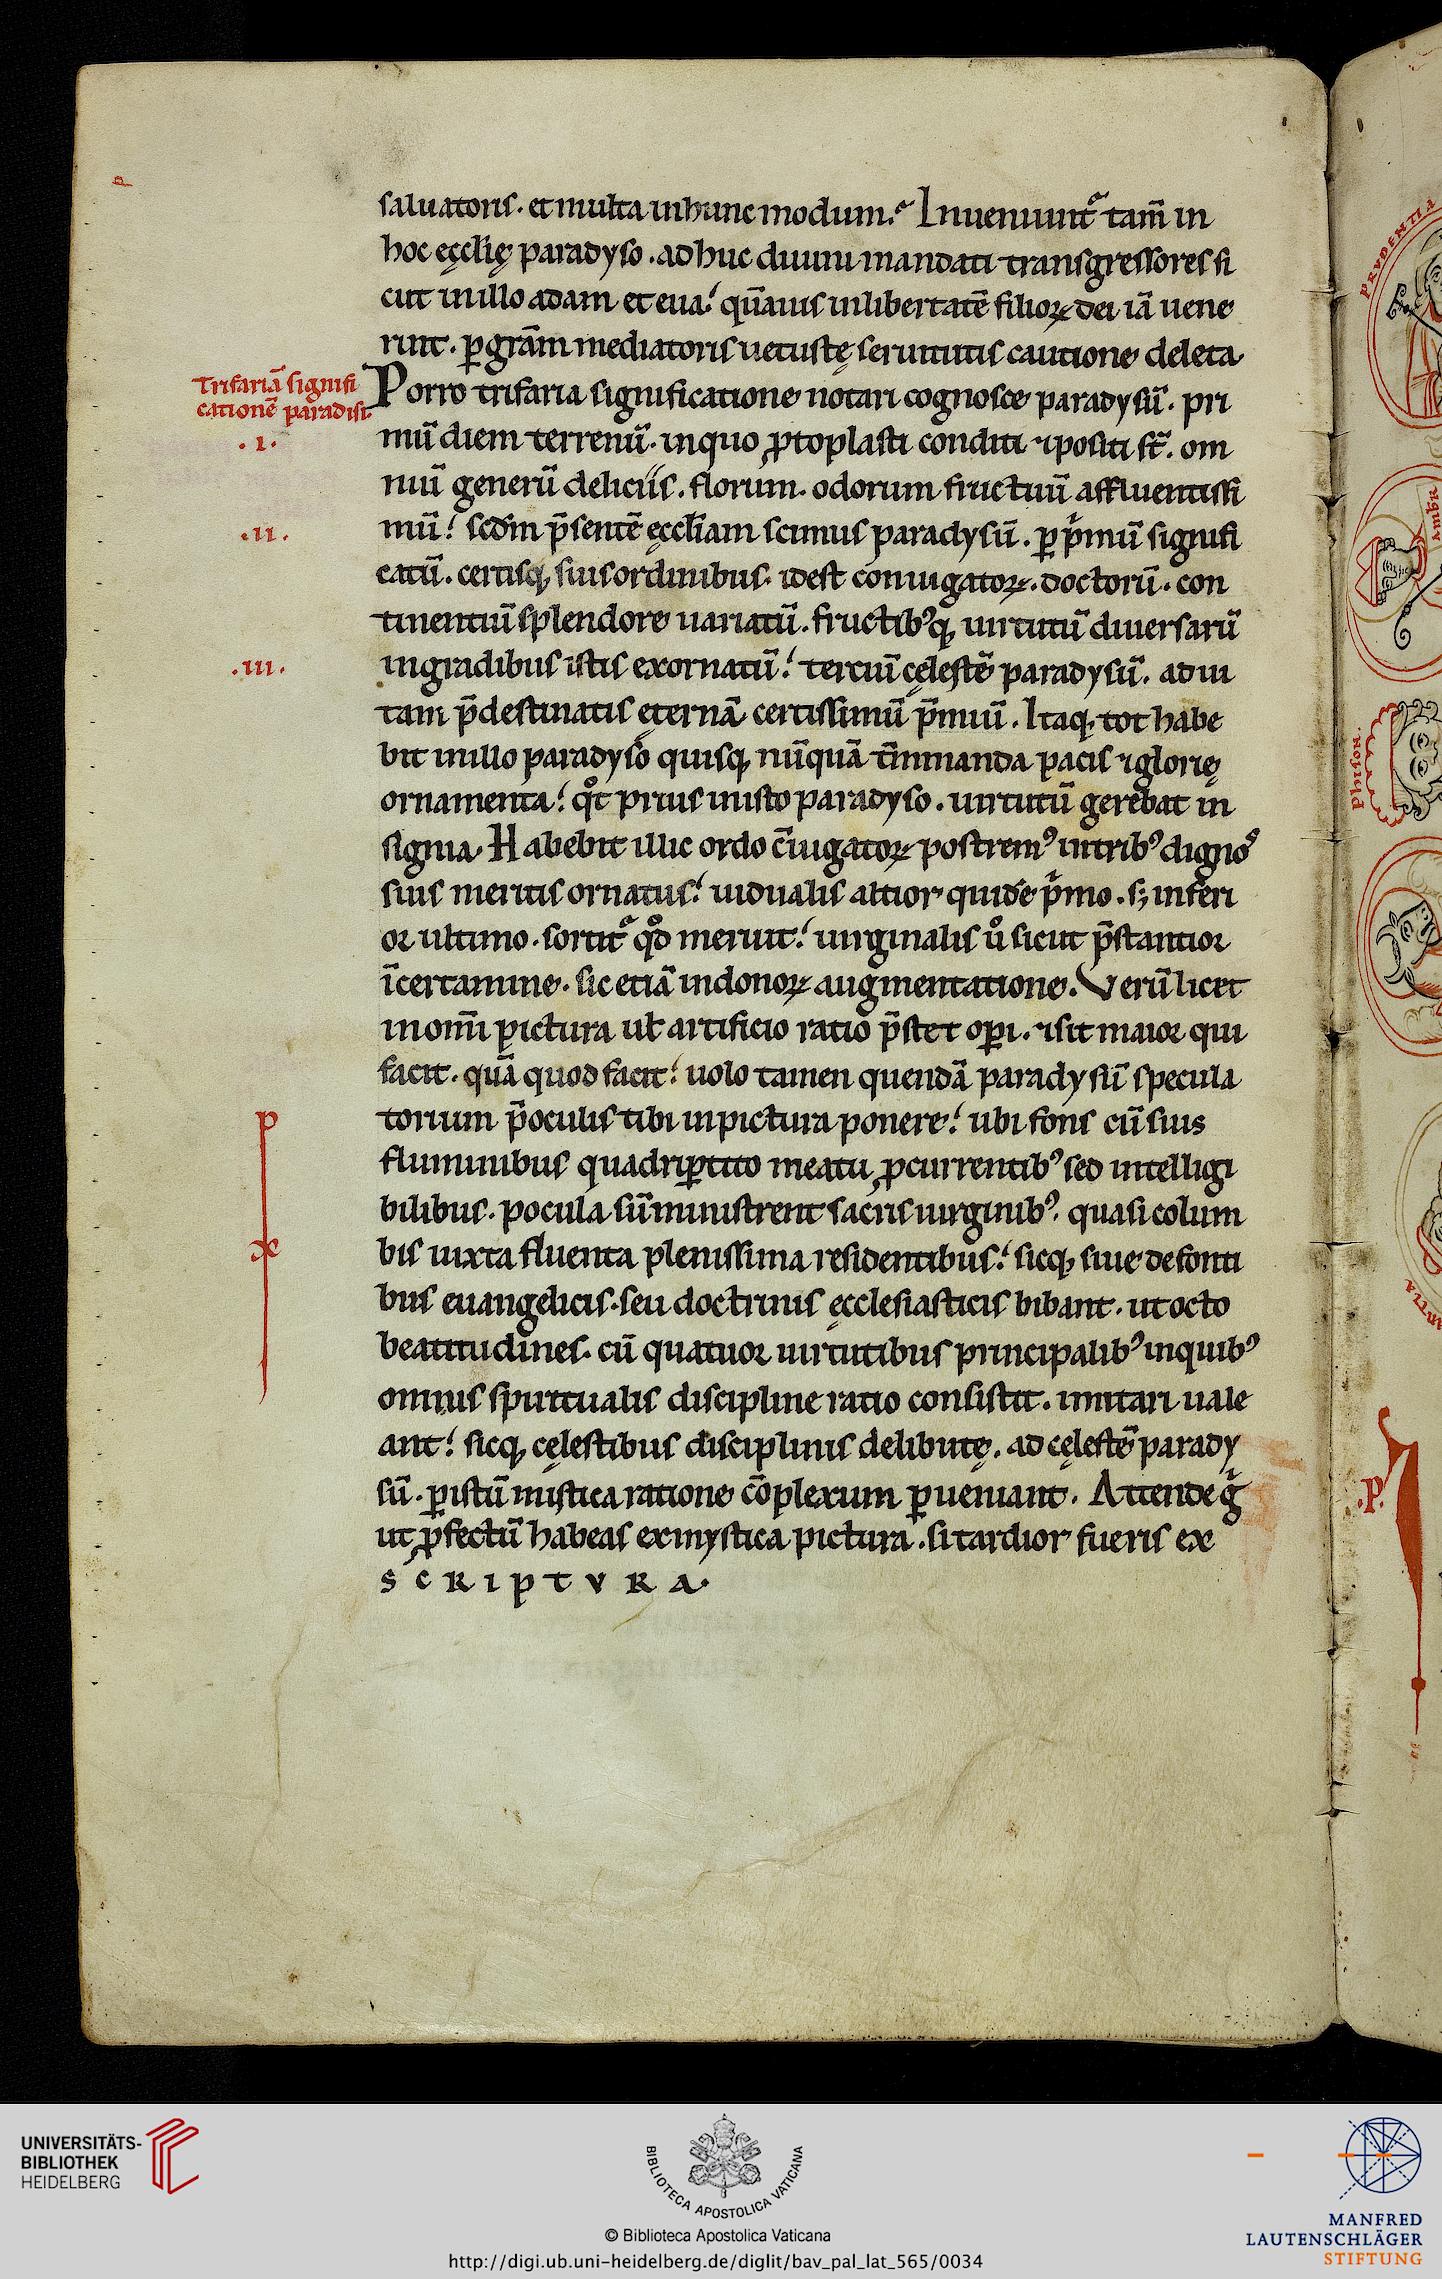 saluatoris. et multa in hunc modum. Inueniunt᷑ tam̅ in
hoc ęcclię paradyso. ad huc diuini mandati transgressores si
cut in illo adam et eua. qua̅uis in libertate̅ filioꝝ dei ia̅ uene
runt. ꝑ gra̅m mediatoris uetustę seruitutis cautione deleta
Trifaria̅ signifi
catione̅ paradisi.
Porro trifaria significatione notari cognosce paradysu̅. pri
.I.
mu̅ diem terrenu̅. in quo ꝓtoplasti conditi ⁊ positi st̅. om
niu̅ generu̅ deliciis. florum. odorum fructuu̅ affluentissi
.II.
mu̅. scd̅m p̅sente̅ ęccl̅iam scimus paradysu̅. ꝑ pͥmu̅ signifi
catu̅. certisq; suis ordinibus. idest coniugatoꝝ. doctoru̅. con
tinentiu̅ splendore uariatu̅. fructibꝰq; uirtutu̅ diuersaru̅
.III.
in gradibus istis exornatu̅. terciu̅ cęleste̅ paradysu̅. ad ui
tam p̅destinatis ęterna̅ certissimu̅ p̅miu̅. Itaq; tot habe
bit in illo paradyso quisq; nu̅qua̅ t̅minanda pacis ⁊ glorię
ornamenta. qͦt prius in isto paradyso. uirtutu̅ gerebat in
signia. Habebit illic ordo c̅iugatoꝝ postremꝰ in tribꝰ dignos
suis meritis ornatus. uidualis altior quide̅ pͥmo. s; inferi
or ultimo. sortit᷑ qͦd meruit. uirginalis uͦ sicut p̅stantior
i̅ certamine. sic etia̅ in donoꝝ augmentatione. Veru̅ licet
in om̅i pictura ul̅ artificio ratio p̅stet oꝑi. ⁊ sit maior qui
facit. qua̅ quod facit. uolo tamen quenda̅ paradysu̅ specula
torium p̅ oculis tibi in pictura ponere. ubi fons cu̅ suis
p
fluminibus quadriꝑtito meatu ꝓcurrentibꝰ sed intelligi
bilibus. pocula su̅ministrent sacris uirginibꝰ. quasi colum
x
bis iuxta fluenta plenissima residentibus. sicq; siue de fonti
bus euangelicis. seu doctrinis ęcclesiasticis bibant. ut octo
beatitudines. cu̅ quatuor uirtutibus principalibꝰ in quibꝰ
omnis spiritualis discipline ratio consistit. imitari uale
ant. sicq; cęlestibus disciplinis delibutę. ad cęleste̅ parady
su̅. ꝑ istu̅ mistica ratione co̅plexum ꝑueniant. Attende gͦ
ut ꝓfectu̅ habeas ex mystica pictura. si tardior fueris ex
SCRIPTVRA.
PRVDENTIA
Phison.
.P.
UNIVERSITÄTS-
BIBLIOTHEK
HEIDELBERG
BIBLIOTECA APOSTOLICA VATICANA
© Biblioteca Apostolica Vaticana
http://digi.ub.uni-heidelberg.de/diglit/bav_pal_lat_565/0034
MANFRED
LAUTENSCHLÄGER
STIFTUNG